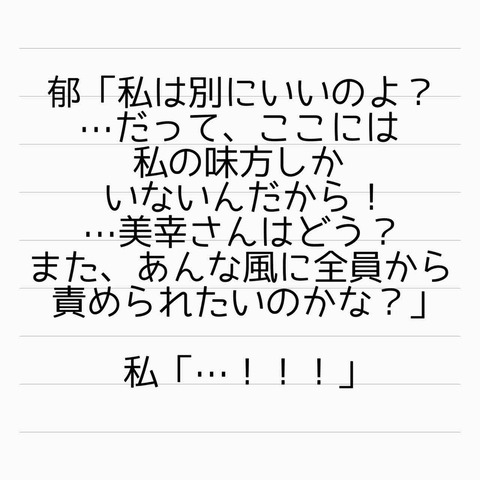 郁「私は別にいいのよ？
…だって、ここには
私の味方しか
いないんだから！
…美幸さんはどう？
また、あんな風に全員から
責められたいのかな？」
私「…！！！」